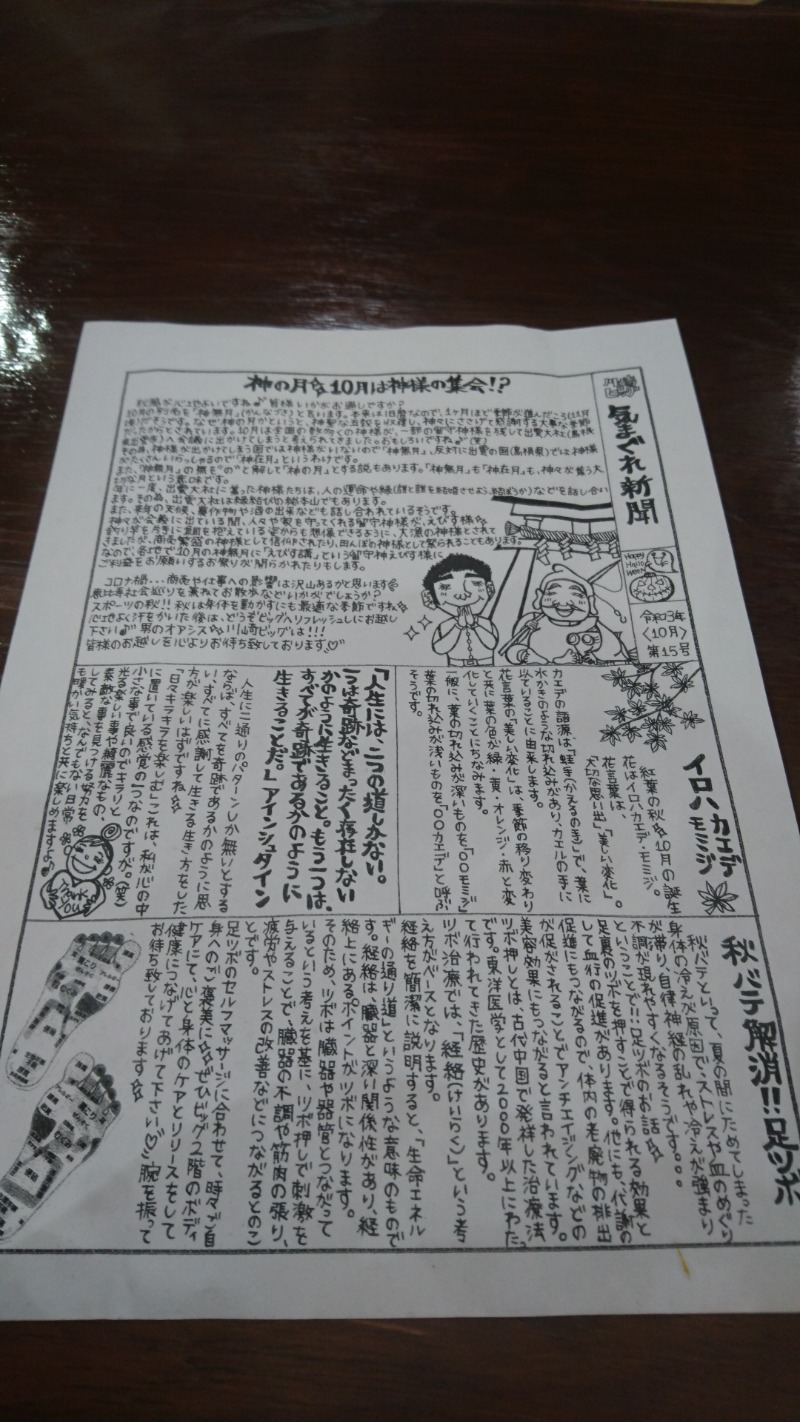 気まぐれ新聞
令和3年
〈10月〉
第15号
Happy
Hallo
ween
神の月☆10月は神様の集会!?
秋風が心地よいですね♪皆様いかがお過しですか?
10月の別名を「神無月」(かんなづき)と言います。本来は旧暦なので、1ヶ月ほど季節が進んだころ(11月
頃)だそうです。なぜ神の月かというと、神聖な
たからとされています。10月は全国の数多くの神様が、一部の留守神様を残して出雲大社(島根
県出雲市)へ会議に出かけてしまうと考えられてきました。おもしろいですね♪(笑)
その為、神様が出かけてしまう国では神様がいないので「神無月」、反対に出雲の国(島根県)では神様
がたくさんいらっしゃるので「神在月」というわけです。
また、「神無月」の無を"の"と解して「神の月」とする説もあります。「神無月」も「神在月」も、神々が集う大
切な月という意味です。
年に一度、出雲大社に集った神様たちは、人の運命や縁(誰と誰を結婚させよう、結ぼうか)などを話し合い
ます。その為、出雲大社は縁結びの総本山でもあります。
また、来年の天候、農作物や酒の出来なども話し合われているそうです。
神々が会議に出ている間、人々や家を守ってくれる留守神様が、えびす様☆
釣り竿を片手に鯛を抱えている姿からも想像できるように、大漁の神様とされて
きましたが、商売繁盛の神様として信仰されたり、田んぼの神様として祭られることもあります。
なので、各地で10月の神無月に「えびす講」という留守神えびす様に
ご利益をお願いするお祭りが開らかれたりもします。
コロナ禍…商売や仕事への影響は沢山あるかと思います
恵比寿社会巡りを兼ねてお散歩などいかがでしょうか?
スポーツの秋!!秋は身体を動かすにも最適な季節ですね☆
心地よく汗をかいた後は、どうぞビッグへリフレッシュしにお越し
下さい♪男のオアシス☆川崎ビッグは!!!
皆様のお越しを心よりお待ち致しております♡
イロハカエデ
モミジ
紅葉の秋☆10月の誕生
花はイロハカエデ・モミジ。
花言葉は、
「大切な思い出」「美しい変化」。
カエデの語源は、「蛙手(かえるのき)」で、葉に
水かきのような切れ込みがあり、カエルの手に
似ていることに由来します。
花言葉の「美しい変化」は、季節の移り変わり
と共に葉の色が緑・黄・オレンジ・赤と変
化していくことにちなみます。
一般に、葉の切れ込みが深いものを「〇〇モミジ」
葉の切れ込みが浅いものを「〇〇カエデ」と呼ぶ
そうです。
「人生には、二つの道しかない。
一つは奇跡などまったく存在しない
かのように生きること。もう一つは、
すべてが奇跡であるかのように
生きることだ。」アインシュタイン
人生に二通りのパターンしか無いとする
ならば、すべてを奇跡であるかのように思
い、すべてに感謝して生きる生き方をした
方が楽しいはずですね☆
「日々キラキラを楽しむ」これは、私が心の中
に置いている感覚の一つなのですが。(笑)
小さな事で良いのでキラリと
光る楽しい事や綺麗なもの、
素敵な事を見つける努力を
してみると、なんでもない日常
も暖かい気持ちと共に楽しめますよ♪
Thank
You
秋バテ解消!!足ツボ
秋バテといって、夏の間にためてしまった
身体の冷えが原因で、ストレスや血のめぐり
が滞り、自律神経の乱れや冷えが強まり
不調が現れやすくなるそうです。。。
ということで!!足ツボのお話☆
足裏のツボを押すことで得られる効果と
して血行の促進があります。他にも、代謝の
促進にもつながるので、体内の老廃物の排出
が促がされることでアンチエイジングなどの
美容効果にもつながると言われています。
ツボ押しとは、古代中国で発祥した治療法
です。東洋医学として2000年以上にわたっ
て行われてきた歴史があります。
ツボ治療では、「経絡(けいらく)」という考
え方がベースとなります。
経絡を簡潔に説明すると、「生命エネル
ギーの通り道」というような意味のもので
す。経絡は、臓器と深い関係性があり、経
絡上にあるポイントがツボになります。
そのため、ツボは臓器や器管とつながって
いるという考えを基に、ツボ押しで刺激を
与えることで、臓器の不調や筋肉の張り、
疲労やストレスの改善などにつながるとのこ
とです。
足ツボのセルフマッサージに合わせて、時々ご自
身へのご褒美に☆ぜひビッグ2階のボディ
ケアにて、心と身体のケアとリリースをして
健康につなげてあげて下さい♡腕を振って
お待ち致しております☆